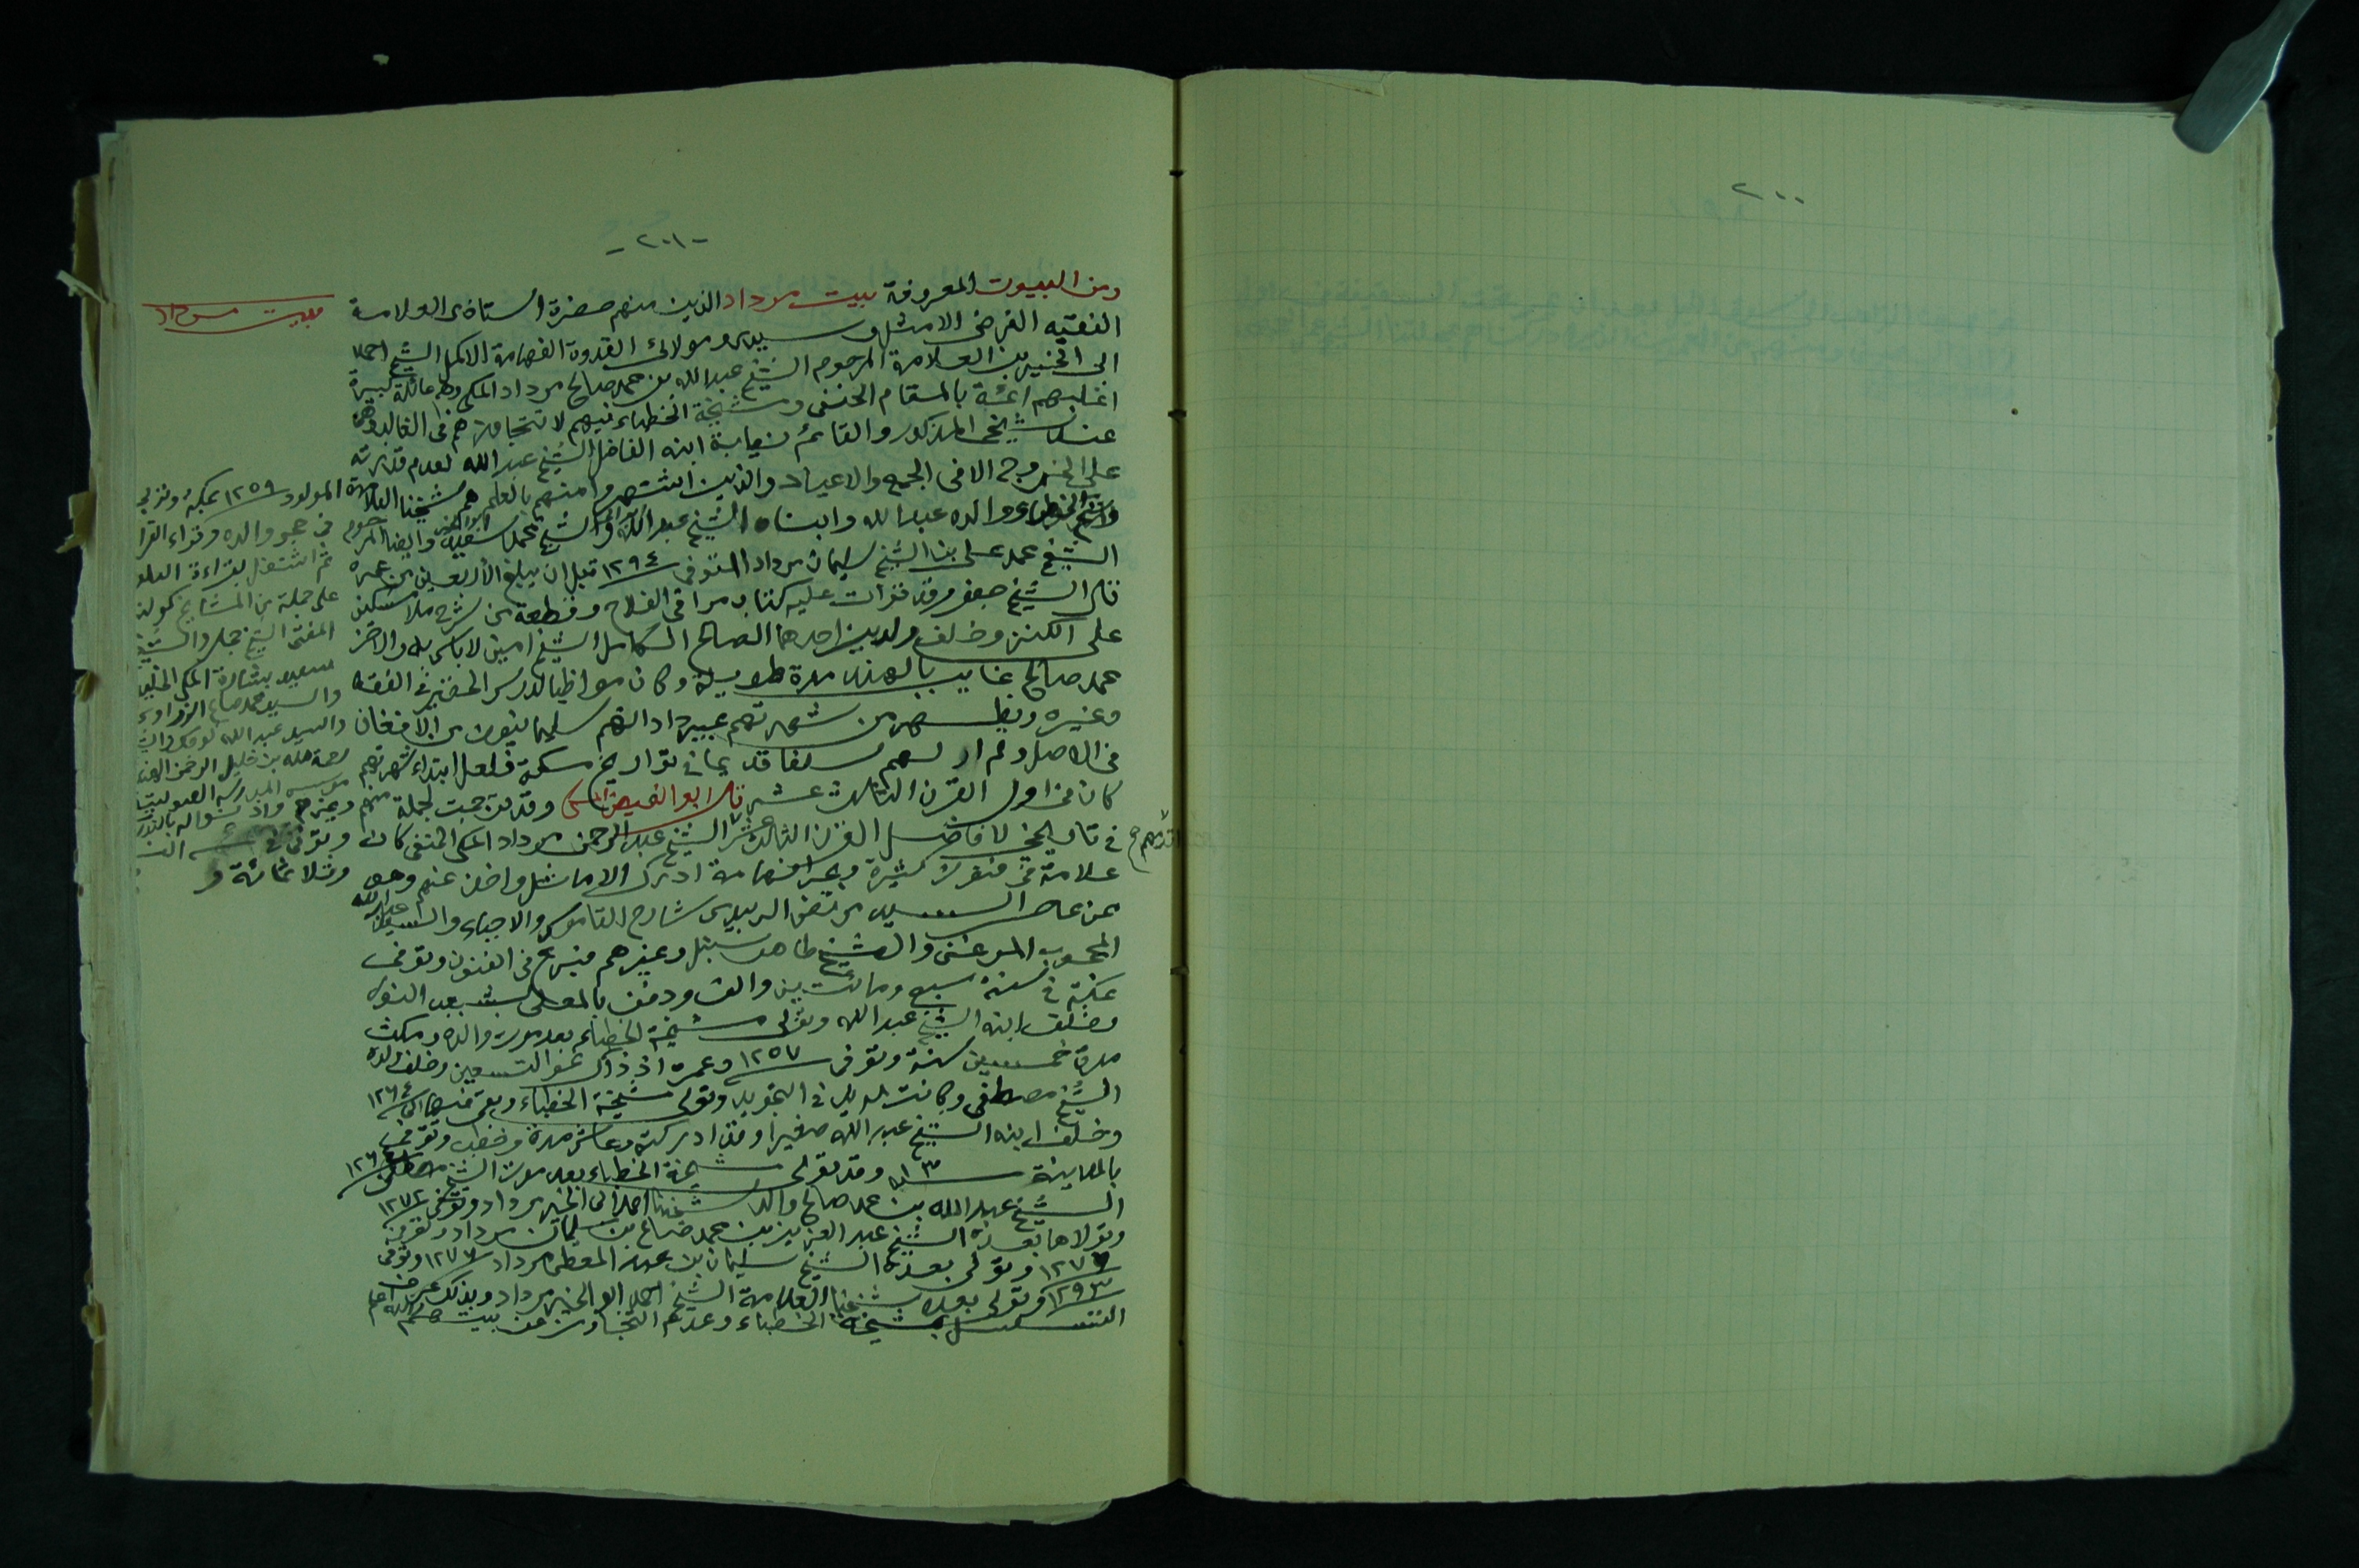 ٢٠٠
-٢٠١-
ومن البيوت المعروفة ببيت مرداد الذين منهم حضرة استاذى العلامة
الفقيه الفرضى الامثل وسيدى ومولائى القدوة الفهامة الاكمل الشيخ احمد
ابى الخير بن العلامة المرحوم الشيخ عبد الله بن محمد صالح مرداد المكى وهم عائلة كبيرة
اغلبهم ائمة بالمقام الحنفى ومشيخة الخطباء فيهم لا تتجاوزهم فى الغالب وهى
عند شيخى المذكور والقائم نيابة ابنه الفاضل الشيخ عبد الله لعدم قدرته
على الخروج الا فى الجمع والاعياد والذين اشتهروا منهم بالعلم هم شيخنا العلامة
وشيخ الخطباء ووالده عبد الله وابناه الشيخ عبد الله والشيخ محمد سعيد وايضا المرحوم
الشيخ محمد على بن الشيخ سليمان مرداد المتوفى ١٢٩٤ قبل ان يبلغ الأربعين من عمره
قال الشيخ جعفر وقد قرات عليه كتاب مراقى الفلاح وقطعة من شرح ملا مسكين
على الكنز وخلف ولدين احدهما الصالح الكامل الشيخ امين لا باس به والاخر
محمد صالح غايب بالهند مدة طويلة وكان مواظبا لدرس الحضير فى الفقه
وغيره ويظهر من شهرتهم بميرداد انهم سليمانيون من الافغان
فى الاصل ولم ار لهم سلفا قديما فى تواريخ مكة فلعل ابتداء شهرتهم
كان فى اول القرن الثالث عشر قال ابو الفيض المكى وقد ترجمت لجملة منهم
فى تاريخى لافاضل القرن الثالث عشر اقدمهم الشيخ عبد الرحمن مرداد المكى الحنفى كان
علامة فى فنون كثيرة وبحر فهامة ادرك الاماثل واخذ عنهم وهو
ممن عاصر السيد مرتضى الزبيدى شارح القاموس والاحياء والسيد عبد الله
المحجوب الميرغنى والشيخ طاهر سنبل وغيرهم فبرع فى الفنون وتوفى
بمكة فى سنة سبع ومائتين والف ودفن بالمعلى بشعب النور
وخلف ابنه الشيخ عبد الله وتولى مشيخة الخطباء بعد موت والده ومكث
مدة خمسين سنة وتوفى ١٢٥٧ وعمره اذ ذاك نحو التسعين وخلف ولده
الشيخ مصطفى وكانت له يد فى التجويد وتولى مشيخة الخطباء وبقى فيها الى ١٢٦٤
وخلف ابنه الشيخ عبد الله صغيرا وقد ادركته وعاش مدة وخطب وتوفى
بالمدينة وقد تولى مشيخة الخطباء بعد موت الشيخ مصطفى ١٢٦٤
الشيخ عبد الله بن محمد صالح والد شيخنا احمد ابى الخير مرداد وتوفى ١٢٧٢
وتولاها بعده الشيخ عبد العزيز بن محمد صالح بن سليمان مرداد وتوفى
وتولى بعده الشيخ سليمان بن عبد المعطى مرداد ١٢٧٧ وتوفى
١٢٩٣ وتولى بعده شيخنا العلامة الشيخ احمد ابو الخير مرداد وبذلك عرفت
التسلسل بمشيخة الخطباء وعدم التجاوز من بيت هم والله اعلم
بيت مرداد
المولود ١٢٥٩ بمكة وتربى
فى حجر والده وقراء القرا
ثم اشتغل بقراءة العلو
على جملة من المشايخ كمولنا
المفتى الشيخ جمال والشيخ
سعيد بشارة المكى الخلي
والسيد محمد صالح الزواوى
والسيد عبد الله كوجك والشيخ
رحمة الله بن خليل الرحمن الهند
موسس المدرسه الصولتيه
وغيرهم واذنوا له بالتدر
وتوفى فى
وثلاثمائة و